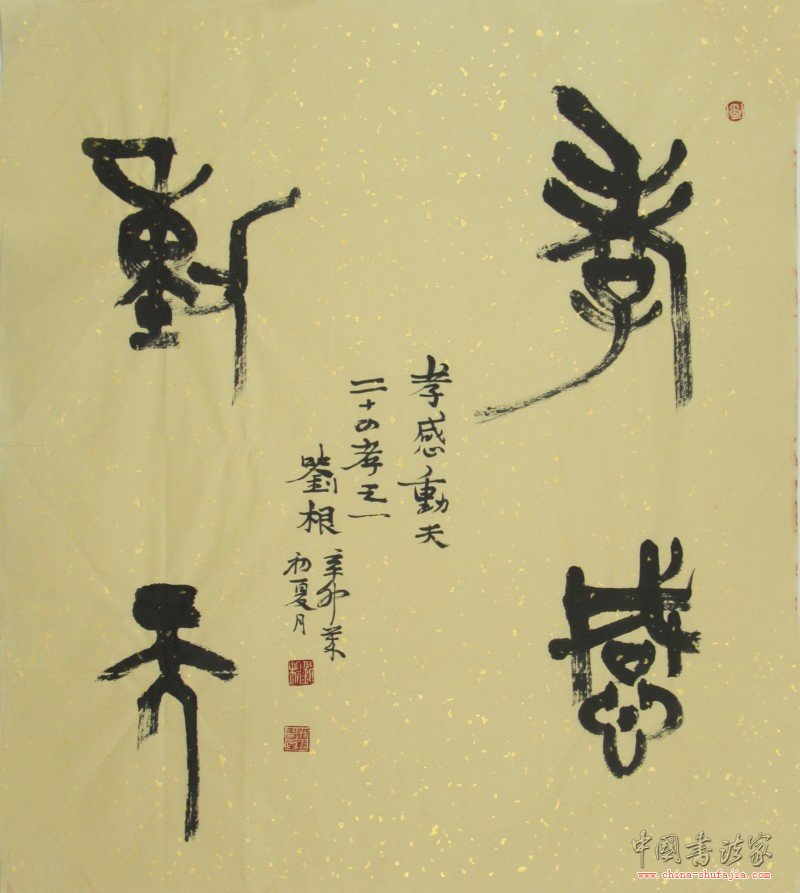 孝感
動天
孝感動天
二十四孝之一
劉根
辛卯菉
初夏月
中國書法家
www.china-shufajia.com